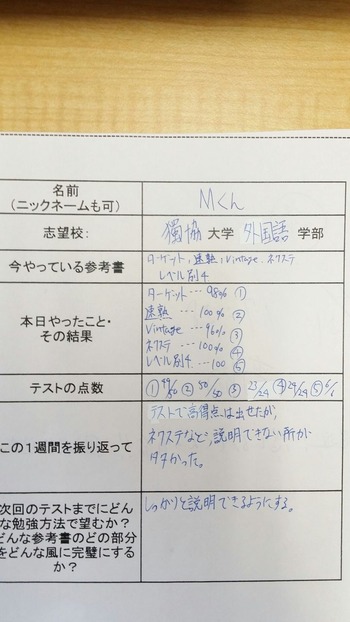 名前
(ニックネームも可)
Mくん
志望校:
獨協 大学 外国語 学部
今やっている参考書
ターゲット、速熟、Vintage、ネクステ
レベル別4
本日やったこと・
その結果
ターゲット…98% ①
速熟 … 100% ②
Vintage … 96% ③
ネクステ … 100% ④
レベル別4 … 100 ⑤
テストの点数
① 49/50 ② 50/50 ③ 23/24 ④ 24/24 ⑤ 6/6
この1週間を振り返って
テストで高得点は出せたが、
ネクステなど、説明できない所が
多かった。
次回のテストまでにどん
な勉強方法で望むか?
どんな参考書のどの部分
をどんな風に完璧にする
か?
しっかりと説明できるようにする。